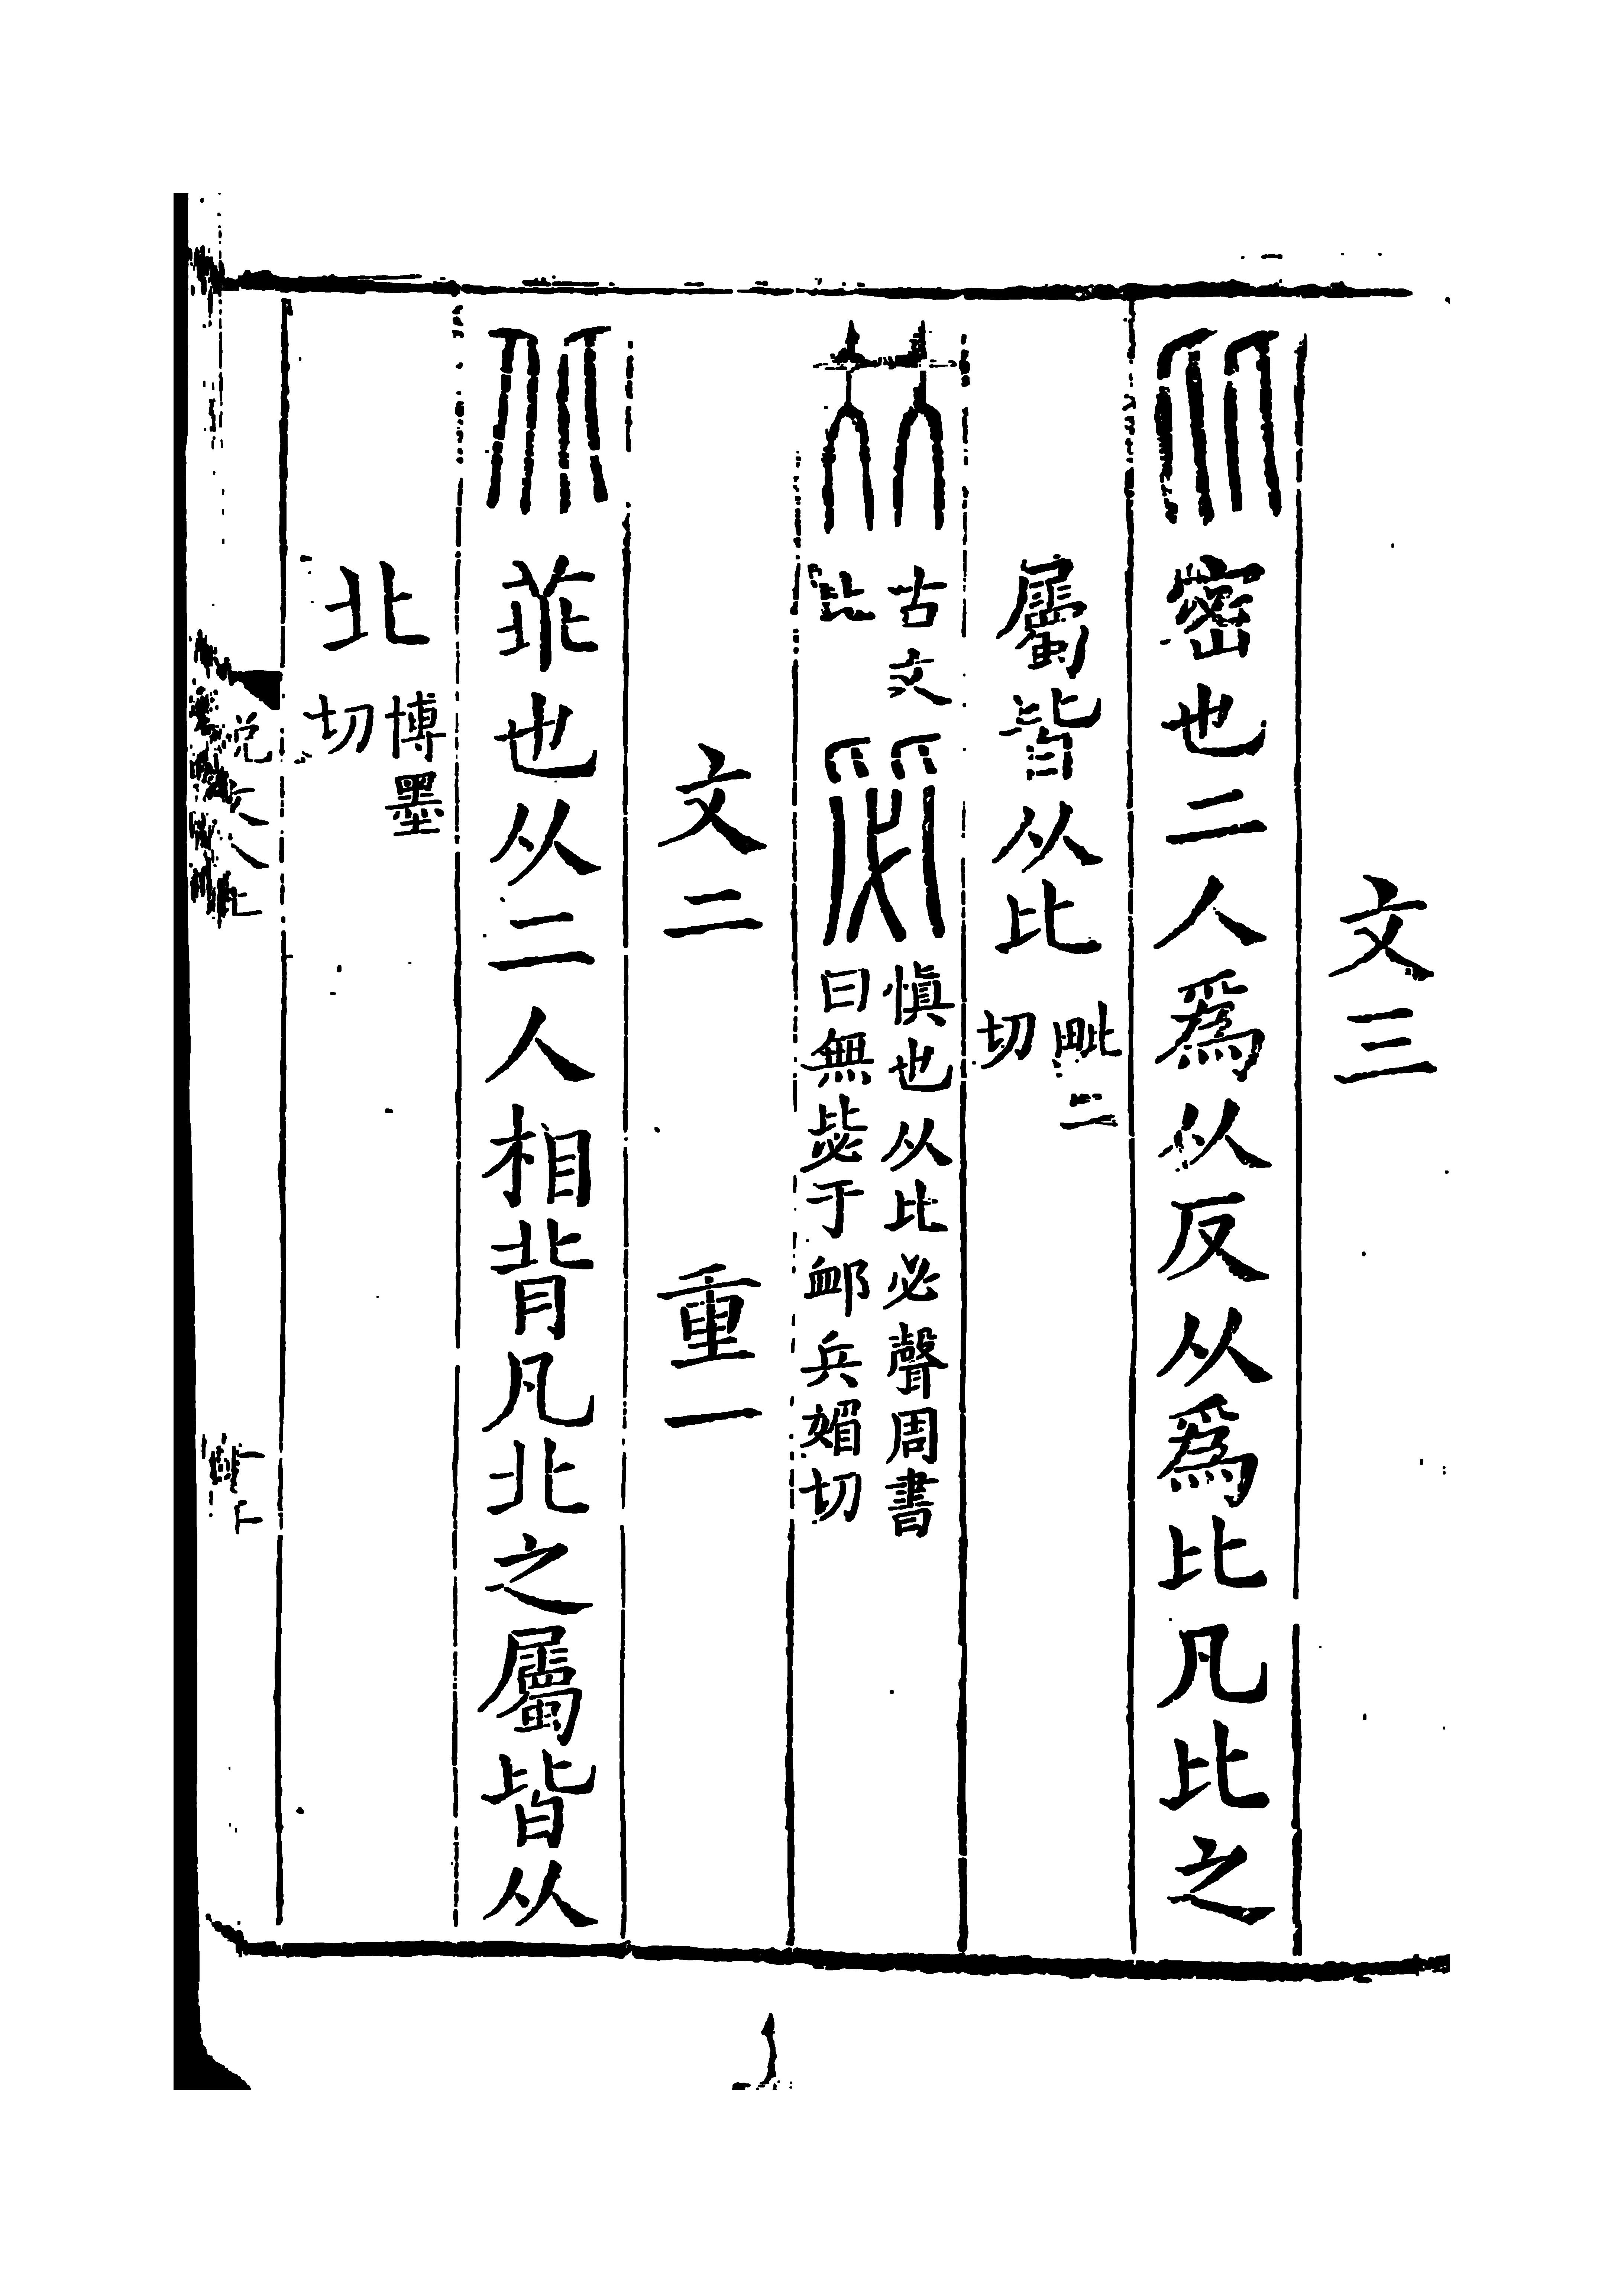 文三
比密也二人爲从反从爲比凡比之
屬皆从比毗二切
古文比毖慎也从比必聲周書曰無毖于卹兵媚切
文二重一
北𦮃也从二人相背凡北之屬皆从
北博墨切